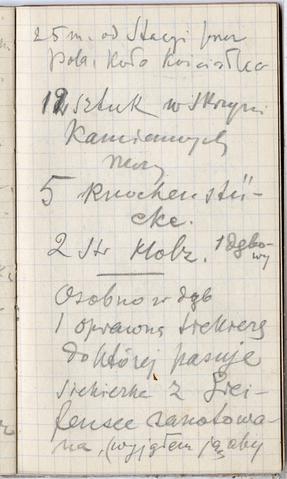 25 m. od Stacji przez
pola. Koło Kościółka
12 sztuk w skrzyni
Kamiennych
rzeczy
5 Knochenstü-
cke.
2 str Holz. 1 dębo-
wy
Osobno w dęb
1 oprawną siekierę
do której pasuje
siekierka z Grei-
fensee zanotowa-
na, (wyjąłem ją aby